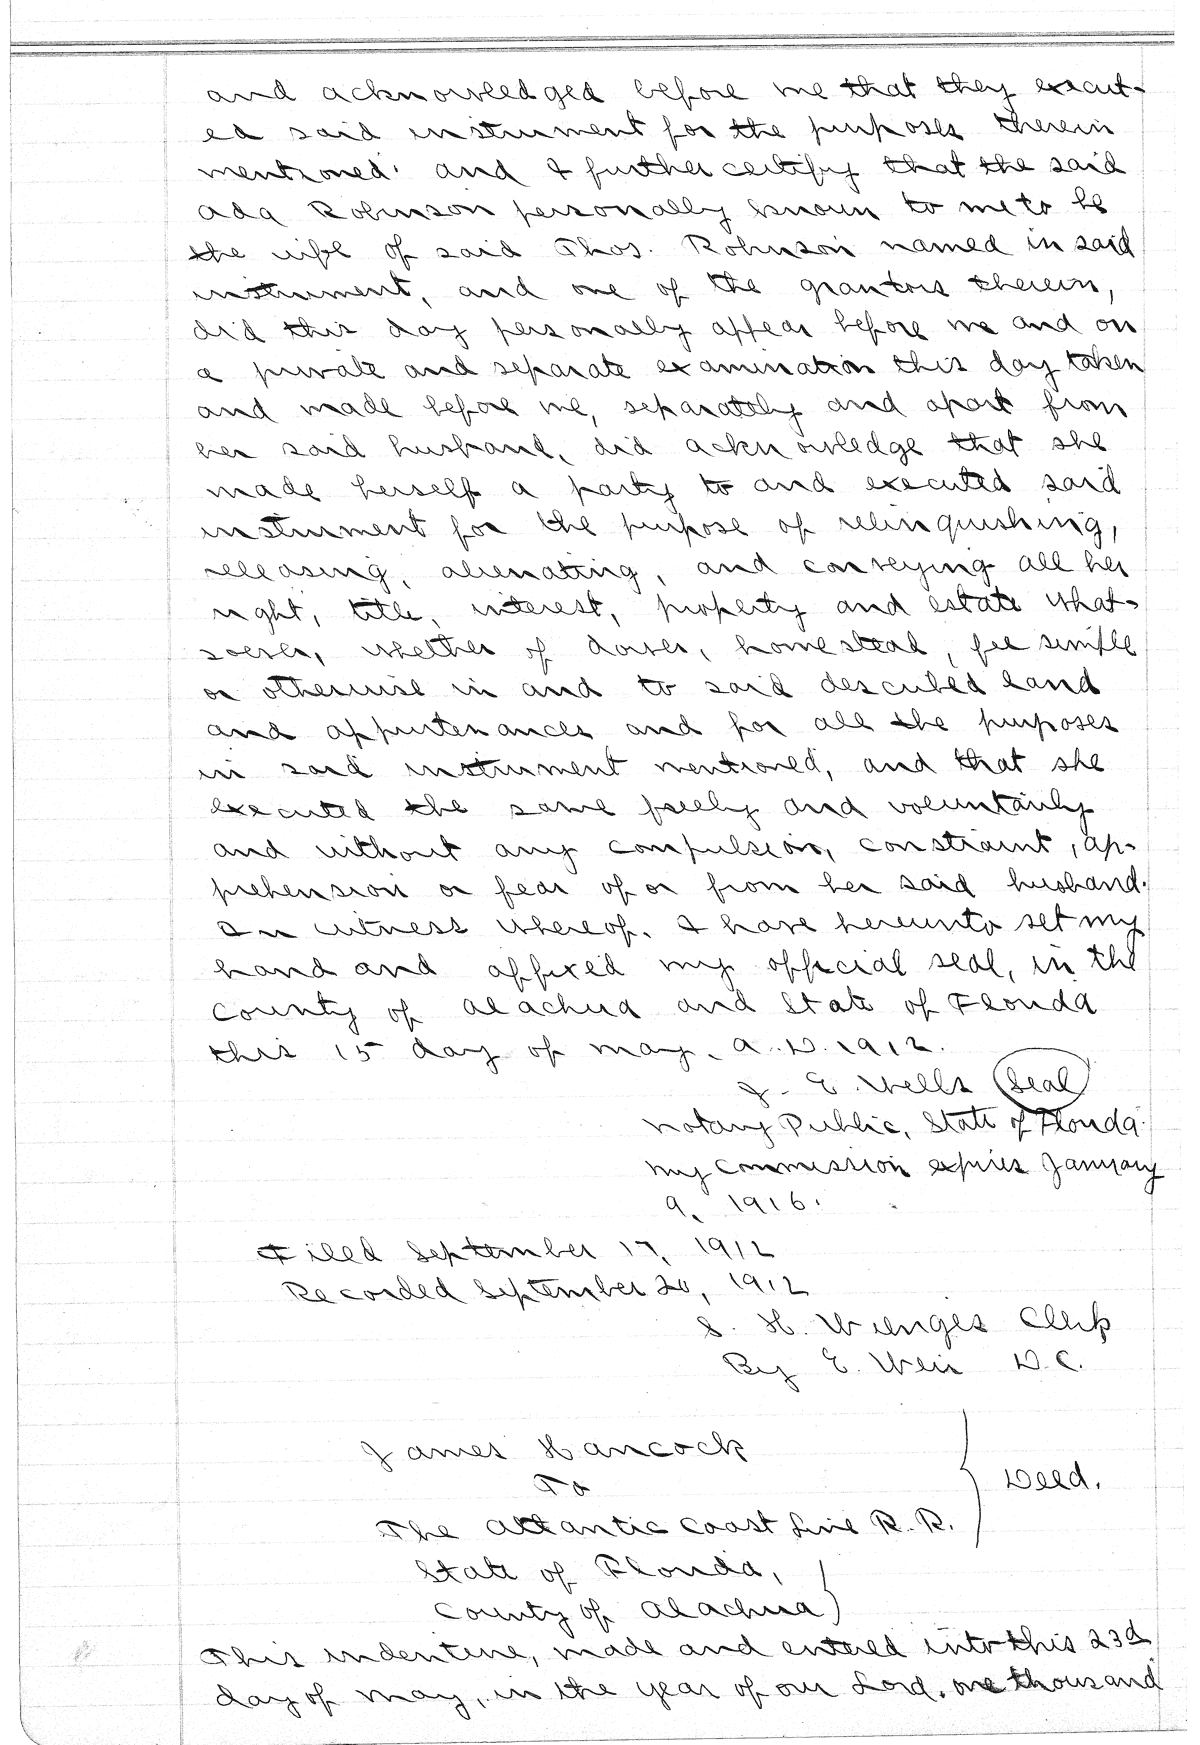 and acknowledged before me that they execut-
ed said instrument for the purposes therein
mentioned. and I further certify that the said
Ada Robinson personally known to me to be
the wife of said Thos. Robinson named in said
instrument, and one of the grantors therein,
did this day personally appear before me and on
a private and separate examination this day taken
and made before me, separately and apart from
her said husband, did acknowledge that she
made herself a party to and executed said
instrument for the purpose of relinquishing,
releasing, alienating, and conveying all her
right, title, interest, property and estate what-
soever, whether of dower, homestead, fee simple
or otherwise in and to said described land
and appurtenances and for all the purposes
in said instrument mentioned, and that she
executed the same freely and voluntarily
and without any compulsion, constraint, ap-
prehension or fear of or from her said husband.
In witness whereof, I have hereunto set my
hand and affixed my official seal, in the
County of Alachua and State of Florida
this 15 day of May, A.D. 1912.
J. E. Wells Seal
Notary Public, State of Florida.
My commission expires January
9, 1916.
Filed September 17, 1912
Recorded September 20, 1912
S. H. Wienges Clerk
By E. Weir D.C.
James Hancock
To
Deed.
The Atlantic Coast Line R. R.
State of Florida,
County of Alachua
This indenture, made and entered into this 23d
day of May, in the year of our Lord, one thousand